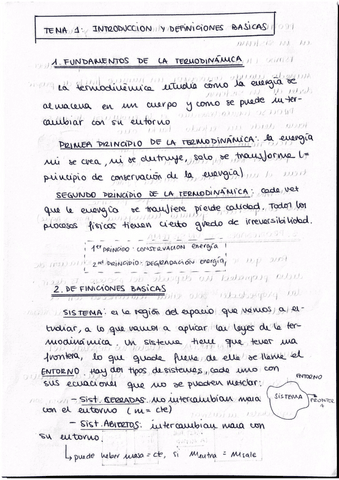 TEMA 1: INTRODUCCION Y DEFINICIONES BASICAS
1. FUNDAMENTOS DE LA TERMODINÁMICA
La termodinámica estudia cómo la energía se
almacena en un cuerpo y como se puede inter-
cambiar con su entorno
PRIMER PRINCIPIO DE LA TERMODINÁMICA: la energía
ni se crea, ni se destruye, solo se transforma (=
principio de conservación de la energía)
SEGUNDO PRINCIPIO DE LA TERMODINÁMICA: cada vez
que la energía se transfiere pierde calidad. Todos los
procesos físicos tienen cierto grado de irreversibilidad.
1er PRINCIPIO: CONSERVACION energía
2nd PRINCIPIO: DEGRADACIÓN energía
2. DEFINICIONES BASICAS
SISTEMA: es la región del espacio que vamos a es-
tudiar, a lo que vamos a aplicar las leyes de la ter-
modinámica. Un sistema tiene que tener una
frontera, lo que quede fuera de ella se llama el
ENTORNO. Hay dos tipos de sistemas, cada uno con
sus ecuaciones que no se pueden mezclar:
- Sist. CERRADOS: no intercambian masa
con el entorno (m = cte)
- Sist. ABIERTOS: intercambian masa con
su entorno.
↳ puede haber masa = ct, si mentra = msale
ENTORNO
SISTEMA
FRONTERA